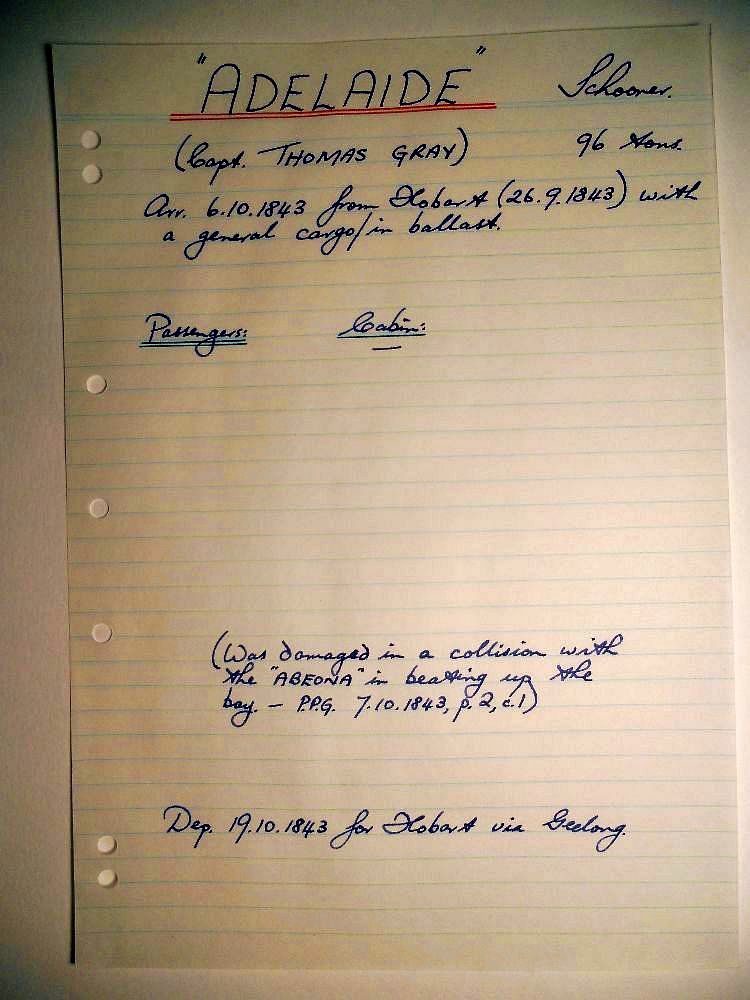 "ADELAIDE" Schooner.
(Capt. THOMAS GRAY) 96 tons.
Arr. 6.10.1843 from Hobart (26.9.1843) with
a general cargo/in ballast.
Passengers: Cabin:
—
(Was damaged in a collision with
the "ABEONA" in beating up the
bay. – P.P.G. 7.10.1843, p.2, c.1)
Dep. 19.10.1843 for Hobart via Geelong.